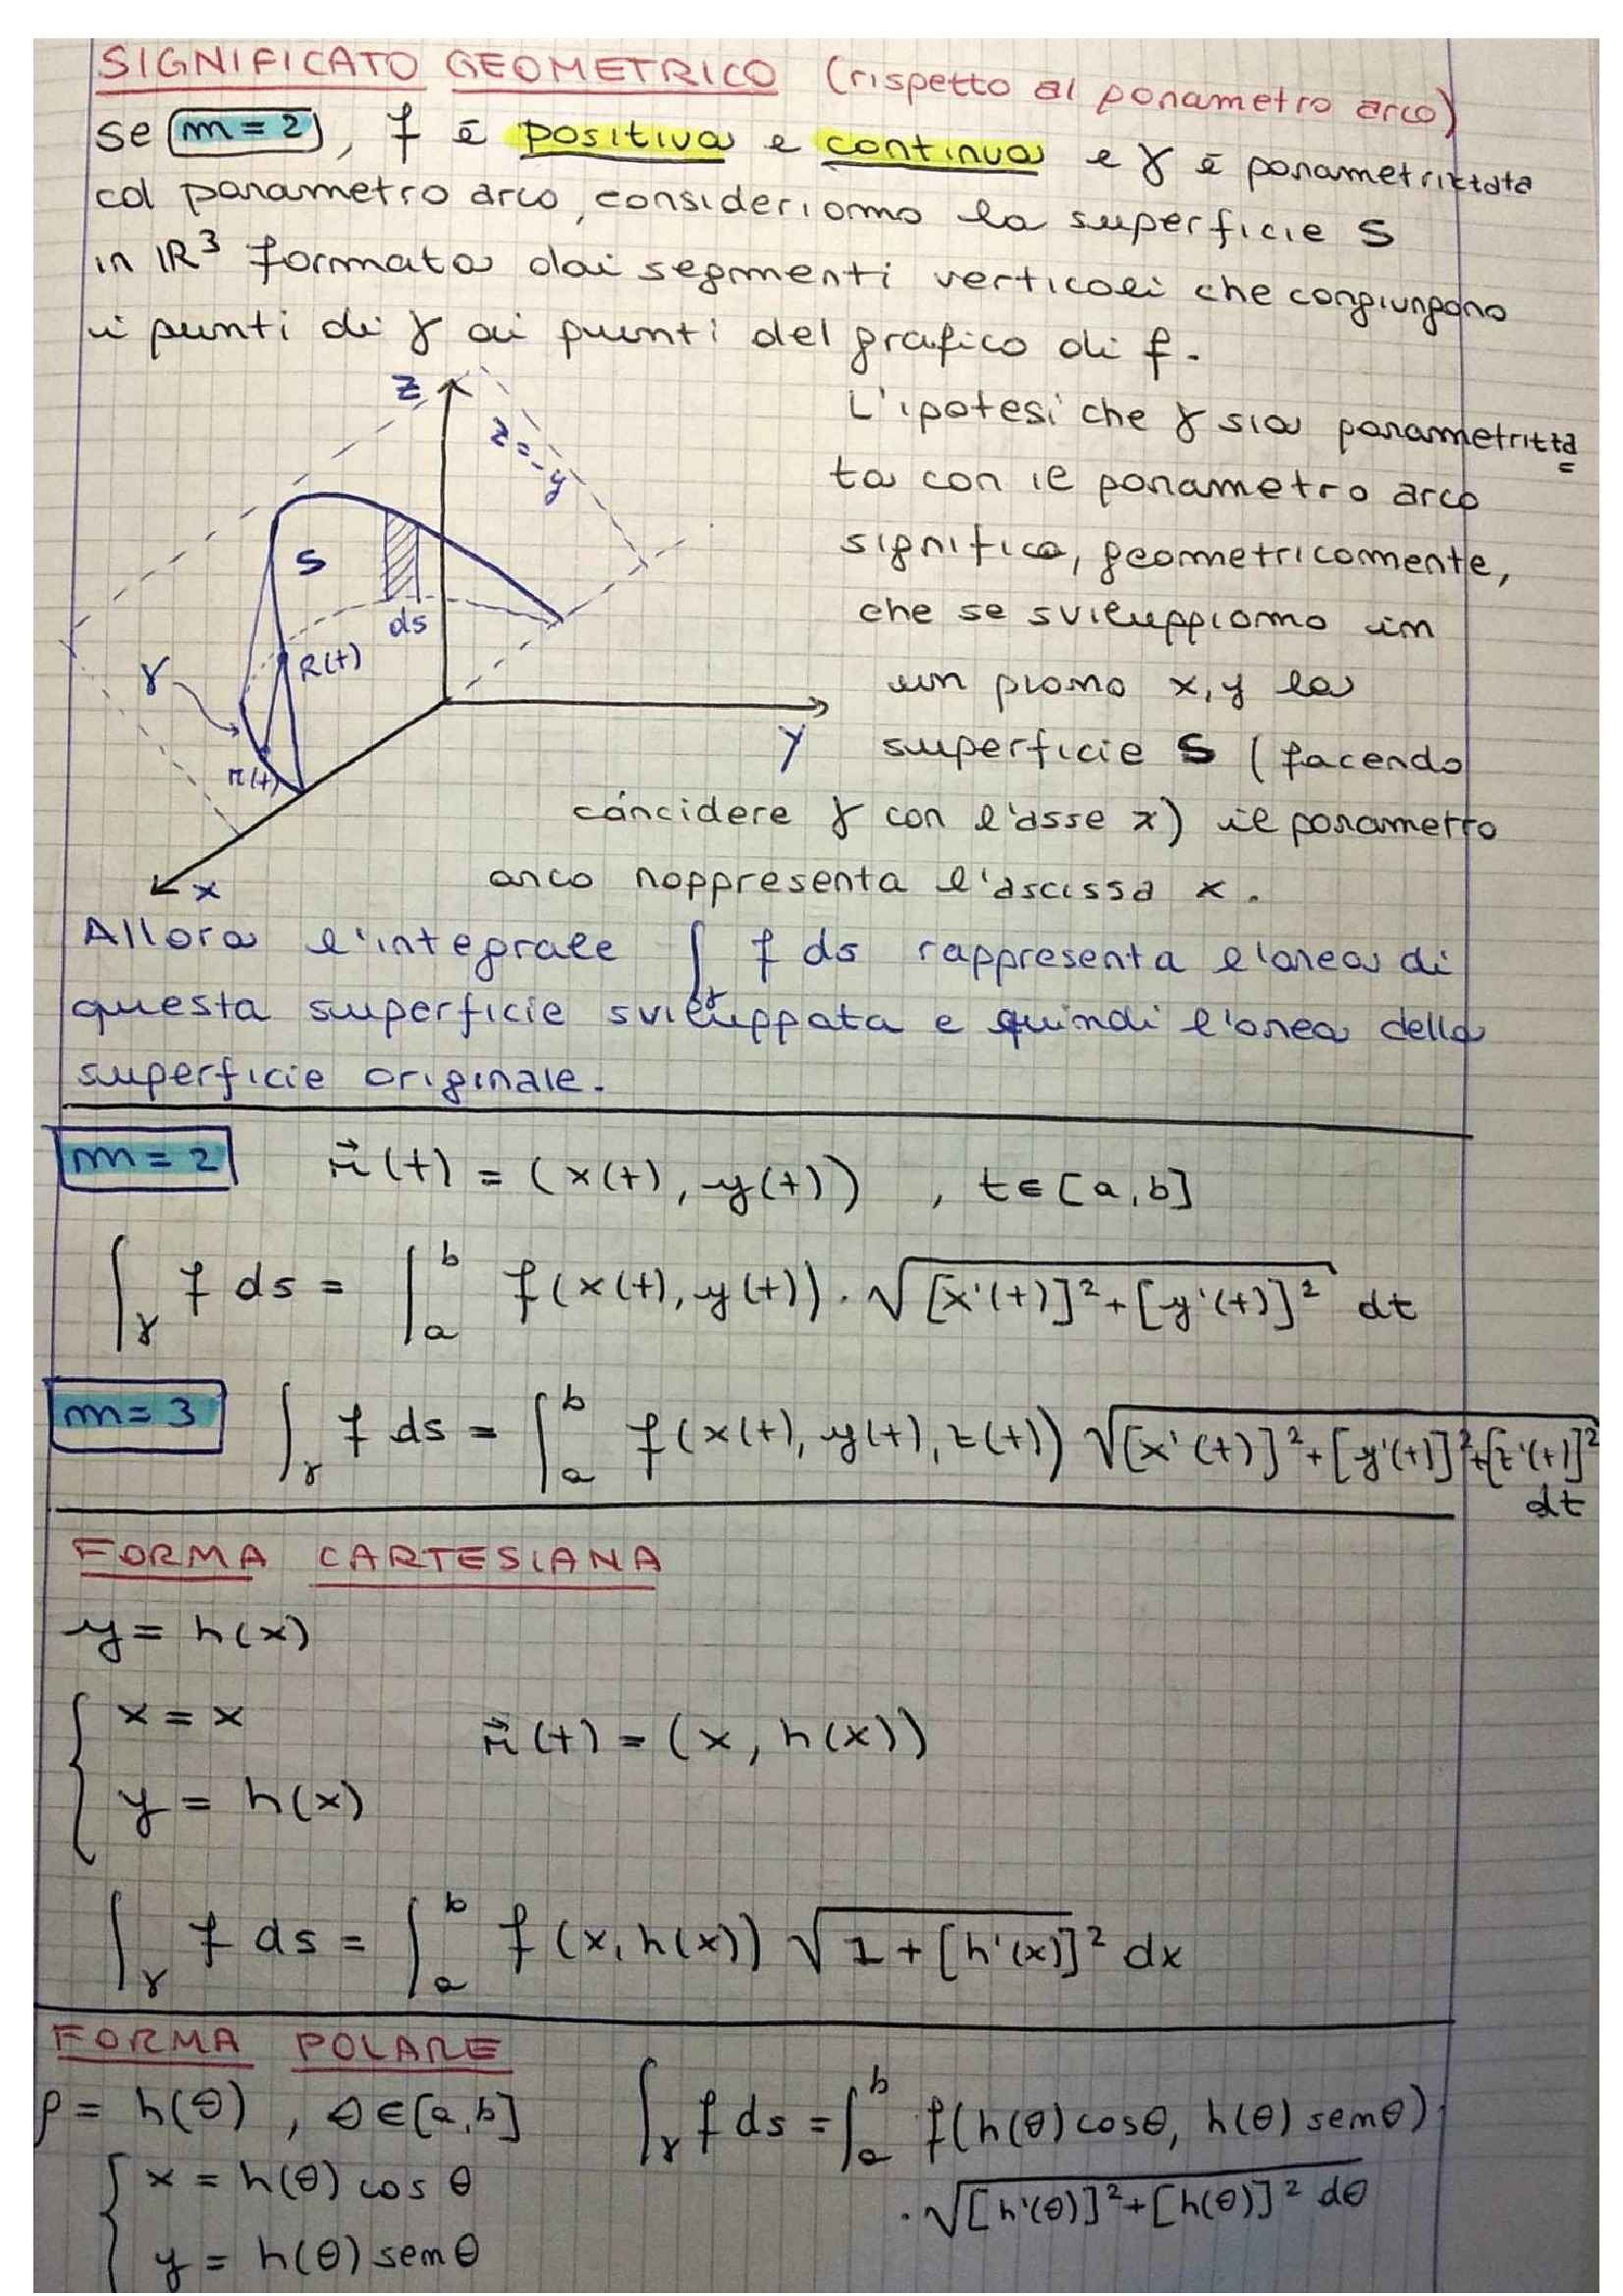 SIGNIFICATO GEOMETRICO (rispetto al parametro arco)
se m = 2, f è positiva e continua e γ è parametrizzata
col parametro arco, consideriamo la superficie S
in ℝ³ formata dai segmenti verticali che congiungono
i punti di γ ai punti del grafico di f.
z
z = -y
S
ds
R(t)
γ
r(t)
y
x
L'ipotesi che γ sia parametrizza
ta con il parametro arco
significa, geometricamente,
che se sviluppiamo in
un piano x, y la
superficie S (facendo
coincidere γ con l'asse x) il parametro
arco rappresenta l'ascissa x.
Allora l'integrale ∫γ f ds rappresenta l'area di
questa superficie sviluppata e quindi l'area della
superficie originale.
m = 2 r⃗(t) = (x(t), y(t)) , t ∈ [a, b]
∫γ f ds = ∫_a^b f(x(t), y(t)) · √([x'(t)]² + [y'(t)]²) dt
m = 3 ∫γ f ds = ∫_a^b f(x(t), y(t), z(t)) √([x'(t)]² + [y'(t)]² + [z'(t)]²)
dt
FORMA CARTESIANA
y = h(x)
{ x = x r⃗(t) = (x, h(x))
y = h(x)
∫γ f ds = ∫_a^b f(x, h(x)) √(1 + [h'(x)]²) dx
FORMA POLARE
ρ = h(θ) , θ ∈ [a, b] ∫γ f ds = ∫_a^b f(h(θ) cosθ, h(θ) senθ) ·
{ x = h(θ) cos θ · √([h'(θ)]² + [h(θ)]²) dθ
y = h(θ) sen θ